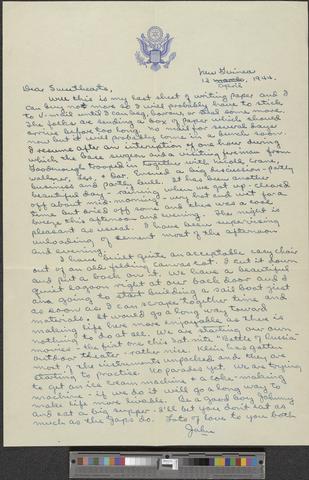 New Guinea
12 march, 1944.
April
Dear Sweethearts,
Well this is my last sheet of writing paper and I
can buy not more so I will probably have to stick
to V-mail until I can beg, borrow, or steal some more.
The folks are sending a box of paper which should
arrive before too long. No mail for several days
now but it will probably come in a bunch soon.
I resume after an interruption of one hour during
which the Base surgeon and a visiting fireman from
Goodenough trooped in together with Crane,
Ensued a big discussion - partly
business and partly bull. It has been another
beautiful day - raining when we got up - cleared
off about mid-morning, very hot and wet for a
time but dried off soon and there was a nice
breeze this afternoon and evening. The night is
pleasant as usual. I have been supervising
unloading of cement most of the afternoon
and evening.
I have built quite an acceptable easy chair
out of an old folding canvas cot. I cut it down
and put a back on it. We have a beautiful
quiet lagoon right at our back door and I
am going to start building a sail boat just
as soon as I can scrape together time and
materials. It would go a long way toward
making life here more enjoyable as there is
nothing to do at all. We are starting our own
movies - the first one this Sat. nite "Battle of Russia"
outdoor theater - rather nice. Klein has gotten
most of the instruments unpacked and they are
starting to practice. No parades yet. We are trying
to get an ice cream machine & a coke-making
machine - if we do it will go a long way to
make life more livable. Be a good boy Johnny
and eat a big supper. I'll bet you don't eat as
much as the Japs do. Lots of love to you both
John